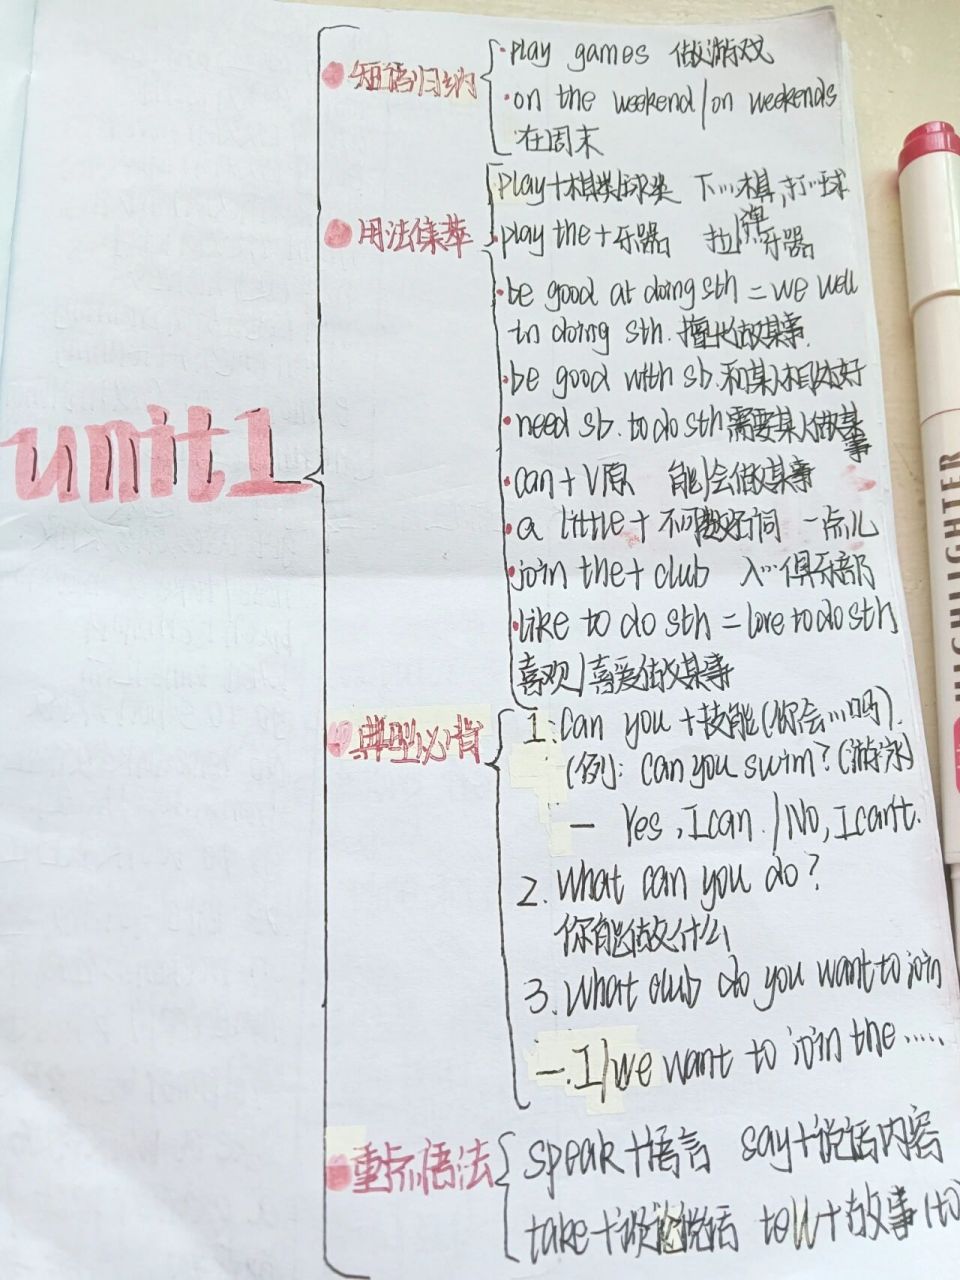 unit1
短语归纳
·play games 做游戏
·on the weekend/on weekends
在周末
用法集萃
play+棋类/球类 下…棋,打…球
play the+乐器 拉/弹乐器
·be good at doing sth = we well
in doing sth.擅长做某事.
·be good with sb.和某人相处好
·need sb. to do sth需要某人做某事
·can+V原 能/会做某事
·a little+不可数名词 一点儿
·join the+club 入…俱乐部
·like to do sth = love to do sth
喜欢/喜爱做某事
典型必背
1.Can you +技能(你会…吗).
(例): can you swim?(游泳)
— Yes,I can./No,I can't.
2.What can you do?
你能做什么
3.What club do you want to join
—.I/we want to join the .....
重点语法
speak+语言 say+说话内容
take+谈论说话 tell+故事(to)
HIGHLIGHTER